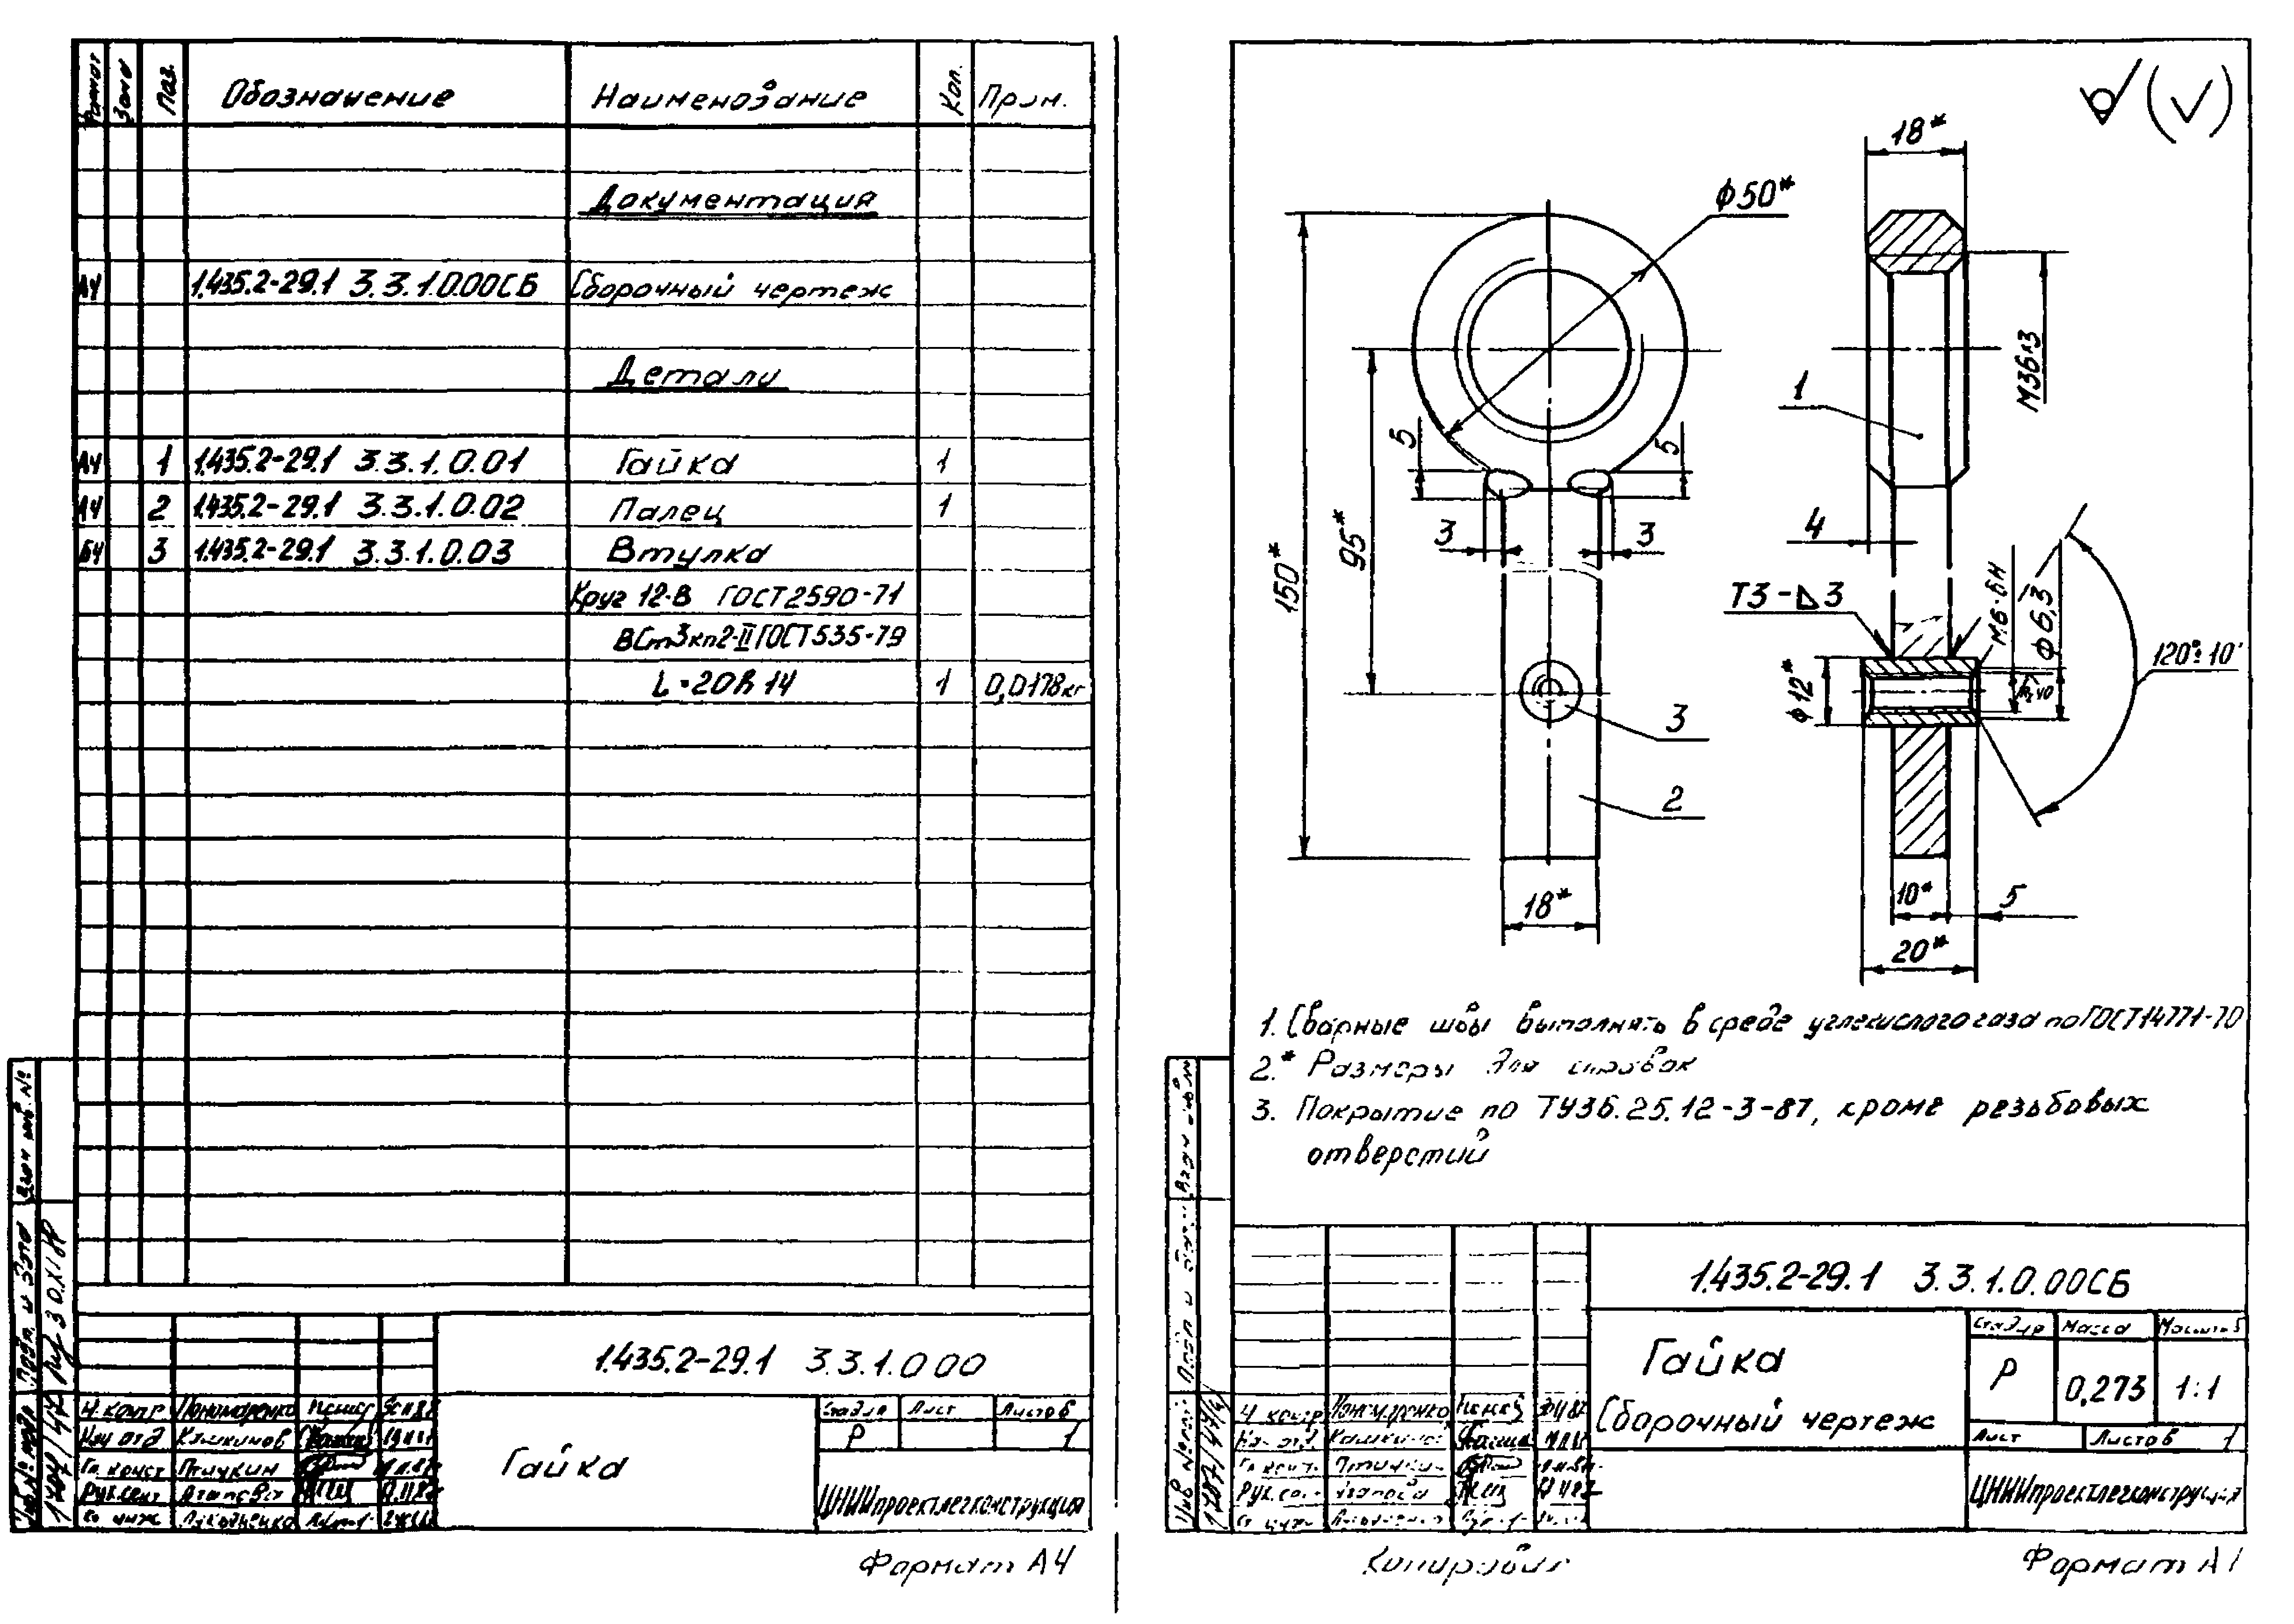 Формат
Зона
Поз.
Обозначение
Наименование
Кол.
Прим.
Документация
А4 1.435.2-29.1 3.3.1.0.00СБ Сборочный чертеж
Детали
А4 1 1.435.2-29.1 3.3.1.0.01 Гайка 1
А4 2 1.435.2-29.1 3.3.1.0.02 Палец 1
БЧ 3 1.435.2-29.1 3.3.1.0.03 Втулка
Круг 12-В ГОСТ 2590-71
ВСт3кп2-II ГОСТ 535-79
L=20h14 1 0,0178кг
Взам инв. №
Подп. и дата
Инв. № подл
1.435.2-29.1 3.3.1.0 00
Н. контр Пономаренко
Нач отд Кляшкинов
Гл. конст Птичкин
Рук. сект Агапова
Ст инж
Гайка
Стадия Лист Листов
Р 1
ЦНИИпроектлегконструкция
Формат А4
18*
ф50*
М36×3
1
5
5
3
3
4
95*
150*
Т3-⊿3
М6-6Н
ф6,3
Rz40
ф12*
120°±10'
3
2
18*
10*
5
20*
1. Сварные швы выполнять в среде углекислого газа по ГОСТ 14771-70
2.* Размеры для справок
3. Покрытие по ТУ36.25.12-3-87, кроме резьбовых
отверстий
1.435.2-29.1 3.3.1.0.00СБ
Гайка
Сборочный чертеж
Стадия Масса Масштаб
Р 0,273 1:1
Лист Листов 1
ЦНИИпроектлегконструкция
Н контр
Рук. се
Копировал
Формат А